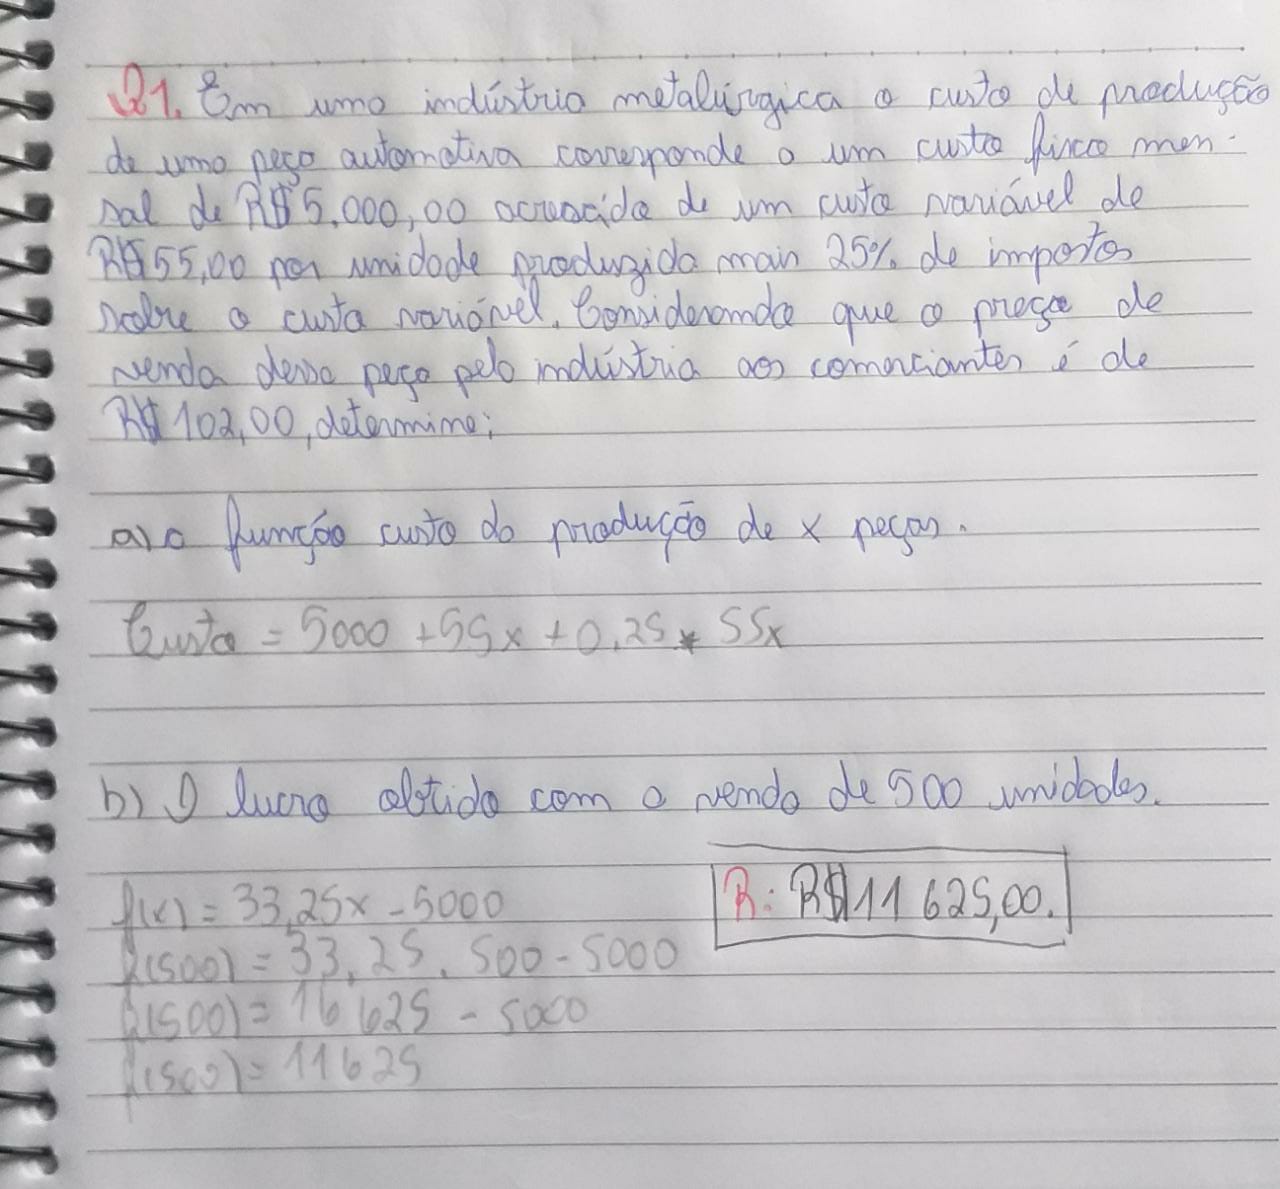 Q1. Em uma indústria metalúrgica o custo de produção
de uma peça automotiva corresponde a um custo fixo men-
sal de R$ 5.000,00 acrescido de um custo variável de
R$ 55,00 por unidade produzida mais 25% de impostos
sobre o custo variável. Considerando que o preço de
venda dessa peça pela indústria aos comerciantes é de
R$ 102,00, determine:
a) a função custo da produção de x peças.
Custo = 5000 + 55x + 0,25 * 55x
b) O lucro obtido com a venda de 500 unidades.
f(x) = 33,25x - 5000
R: R$ 11 625,00.
f(500) = 33,25 . 500 - 5000
f(500) = 16 625 - 5000
f(500) = 11625